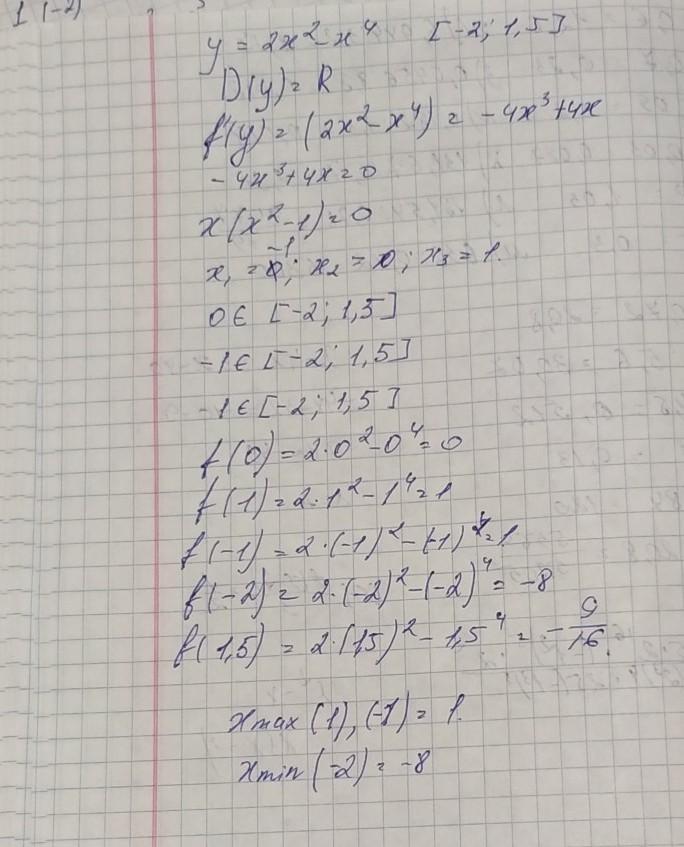 1 (-2)
y = 2x² - x⁴ [-2; 1,5]
D(y) = R
f'(y) = (2x² - x⁴) = -4x³ + 4x
-4x³ + 4x = 0
x(x² - 1) = 0
x₁ = -1; x₂ = 0; x₃ = 1.
0 ∈ [-2; 1,5]
-1 ∈ [-2; 1,5]
-1 ∈ [-2; 1,5]
f(0) = 2·0² - 0⁴ = 0
f(1) = 2·1² - 1⁴ = 1
f(-1) = 2·(-1)² - (-1)⁴ = 1
f(-2) = 2·(-2)² - (-2)⁴ = -8
f(1,5) = 2·(1,5)² - 1,5⁴ = -9/16.
xmax (1), (-1) = 1.
xmin (-2) = -8